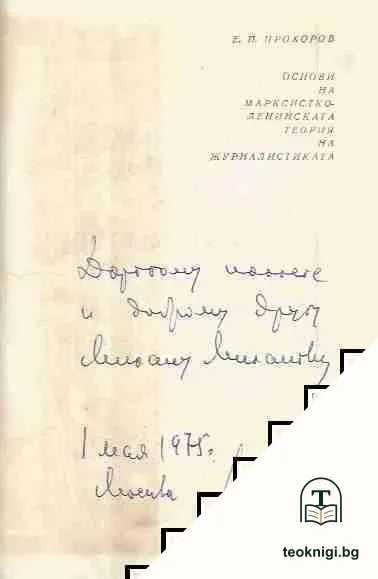 Е. П. ПРОХОРОВ
ОСНОВИ
НА
МАРКСИСТКО-
ЛЕНИНСКАТА
ТЕОРИЯ
НА
ЖУРНАЛИСТИКАТА
Дорогому коллеге
и доброму другу
1 мая 1975г.
Москва
teoknigi.bg